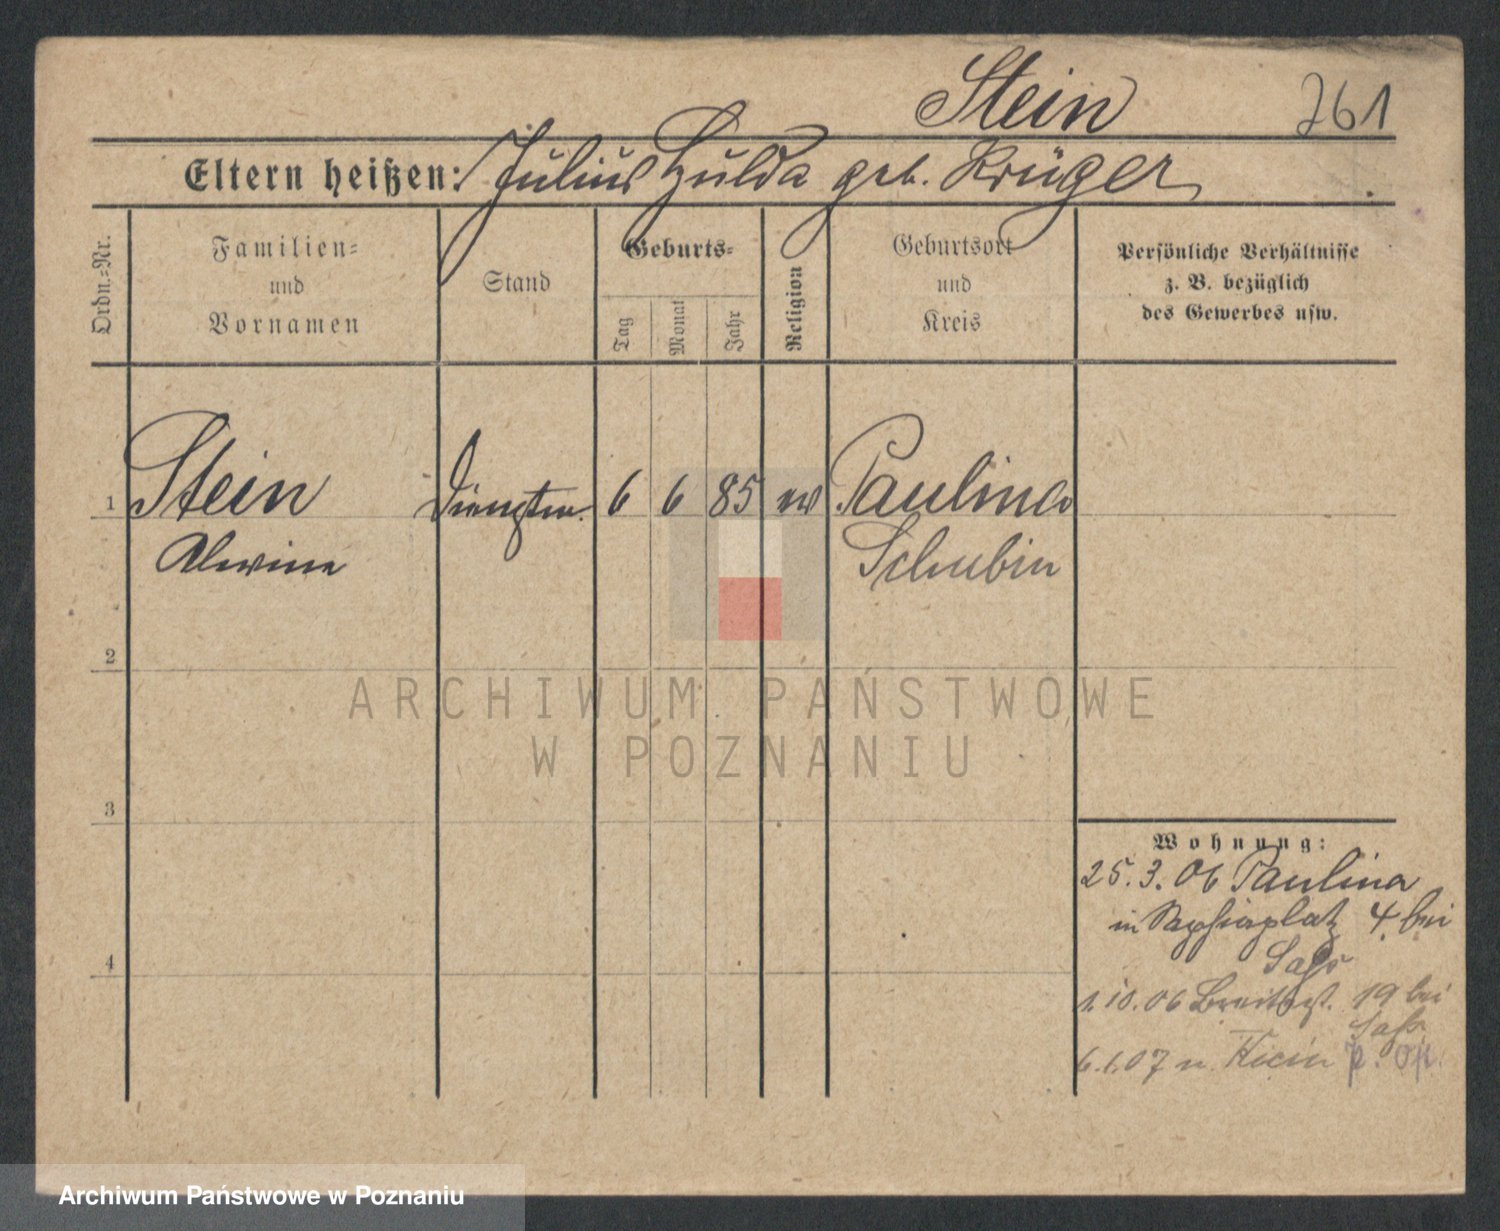 Stein 761
Eltern heißen: Julius Hulda geb. Krüger
Ordn.-Nr.
Familien-
und
Vornamen
Stand
Geburts-
Tag
Monat
Jahr
Religion
Geburtsort
und
Kreis
Persönliche Verhältnisse
z. B. bezüglich
des Gewerbes usw.
1 Stein 6 6 85 ev Paulina
Alwine Schubin
2
3
4
ARCHIWUM PAŃSTWOWE
W POZNANIU
Wohnung:
25.3.06 Paulina
in Sapiehaplatz 4 bei
1.10.06 Breitest. 19 bei
6.1.07 n.
Archiwum Państwowe w Poznaniu